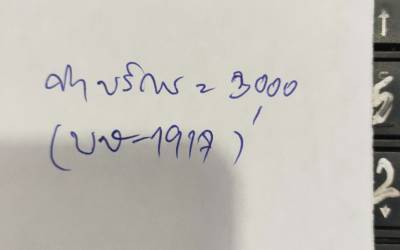 ค่าบริการ = 3,000
(บษ-1917)